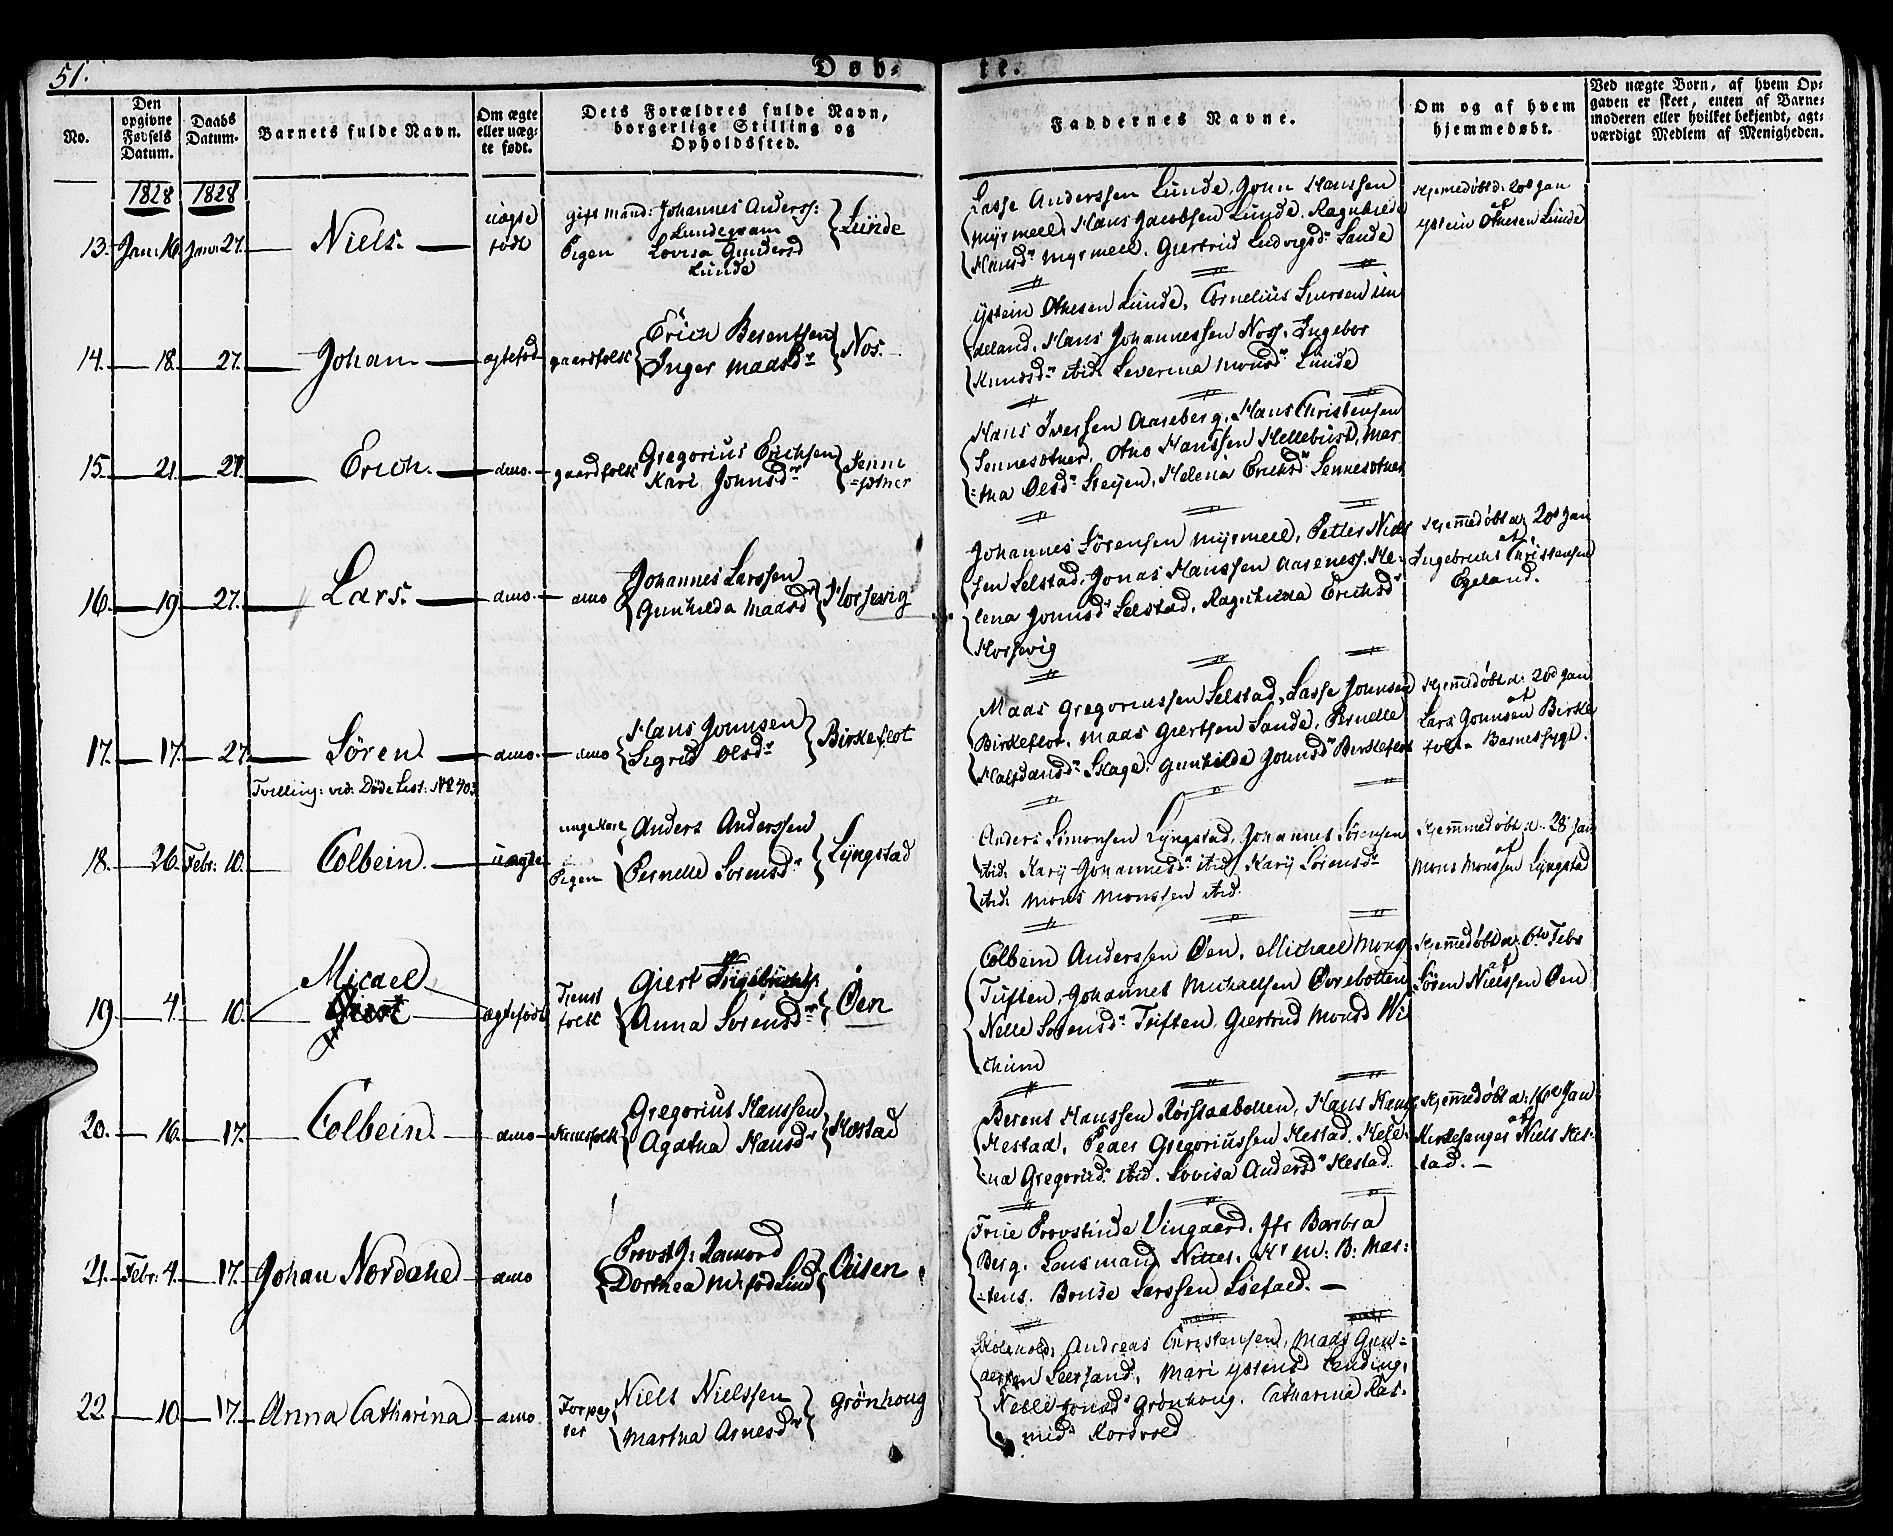 51.
Døb-
te.
No.
Den
opgivne
Fødsels
Datum.
Daabs
Datum.
Barnets fulde Navn.
Om ægte
eller uæg-
te født.
Dets Forældres fulde Navn,
borgerlige Stilling og
Opholdssted.
Faddernes Navne.
Om og af hvem
hjemmedøbt.
Ved uægte Børn, af hvem Op-
gaven er skeet, enten af Barne-
moderen eller hvilket bekjendt, agt-
værdigt Medlem af Menigheden.
1828 1828
13. Jan: 16. Janr: 27. Niels.
uægte
født
gift mand: Johannes Anderss:
Pigen Lovisa Gundersd
Lunde
Lunde
Lasse Anderssen Lunde, Jonn Hanssen
Myrmeel, Hans Jacobsen Lunde. Ragnhilde
Hansd. Myrmeel. Giertrud Ludvigsd. Sande
Hjemedøbt d: 20d Jan
af
Ystein Othesen Lunde
14. 18. 27. Johan ægtefød gaardfolk
Erich Berentsen
Inger Maasdr
Nos.
Ystein Othesen Lunde, Cornelius Siursen Un
deland, Hans Johannessen Nos, Ingebor
Knudsdr ibid. Severina Monsdr Lunde
15. 21. 27. Erich. dmo. gaardfolk
Gregorius Erichsen
Kari Johnsdr
Senne
=støer
Hans Iversen Aaseberg, Hans Christensen
Otho Hanssen Hellebust, Mar
=tha Olsdr Steyen, Helena Erichsdr
16. 19. 27. Lars. dmo. dmo
Johannes Larssen
Gunhilda Maasdr
Horsevig
Johannes Sørensen Myrmeel, Petter Niel
sen Selstad, Jonas Hanssen Aarenes, He-
lena Jonnsdr Selstad, Ragnhilda Erichsdr
Horsevig
Hjemmedøbt d: 20d Jan
af
Ingebricht Christensen
Egeland.
17. 17. 27. Søren dmo. dmo
Tvilling: vid. Døde List: No 403
Hans Jonnsen
Sigrid Olsdr
Birkeflot
Maas Gregoriussen Selstad, Lasse Jonnsen
Birkeflot, Maas Giertsen Sande, Pernelle
Halfdansdr Skage, Gunhilde Jonnsdr Birkeflot
Hjemmedøbt d: 20d Jan
af
Lars Jonnsen Birke
flot - Barnet sygt.
18. 26. Febr: 10. Colbein. uægte
ungekarl Anders Anderssen
Pigen Pernelle Sørensdr
Lyngstad
Anders Simonsen Lyngstad, Johannes Sørensen
ibid. Kary Johannesdr ibid. Kary Sørensdr
ibid. Mons Monssen ibid.
Hjemmedøbt d. 28 Jan
af
Mons Monssen Lyngsta
19. 4. 10. Micael
Giert
ægtefødt
Tienst
folk
Giert
Anna Sørensdr
Øen
Colbein Anderssen Øen, Michael Mons
Tuften, Johannes Michaelsen Øvrebotten
Nelle Sørensdr Tuften, Giertrud Monsd Wi
chum
Hjemmedøbt d: 6te Febr
af
Søren Nielssen Øen
20. 16. 17. Colbein. dmo
Gregorius Hanssen
Agatha Hansdr
Hestad
Berent Hanssen Rørstadbotten, Hans Hans
Hestad, Peder Gregoriussen Hestad, Hele-
na Gregoriid. ibid. Lovisa Andersdr Hestad
Hjemmedøbt d. 16d Jan
af
Kirkesanger Niels Hes-
tad. —
21. Febr: 4. 17. Johan Nordahl dmo
Provst J: Ramord
Dorthea M: fød Lind
Osen
Frue Provstinde Vingaard, Jfr Barbra
Berg. Lensmand Nitter. Hr M: B: Mar-
=tens. Bonde Larssen Løefald. —
22. 10. 17. Anna Catharina dmo.
Niels Nielssen
Martha Arnesdr
Grønhoug
Andreas Christensen, Mads Gun-
dersen Leersand, Mari Ystensd Tending,
Nelle Jonasd Grønhoug. Catharina Ras-
misd Nordvold